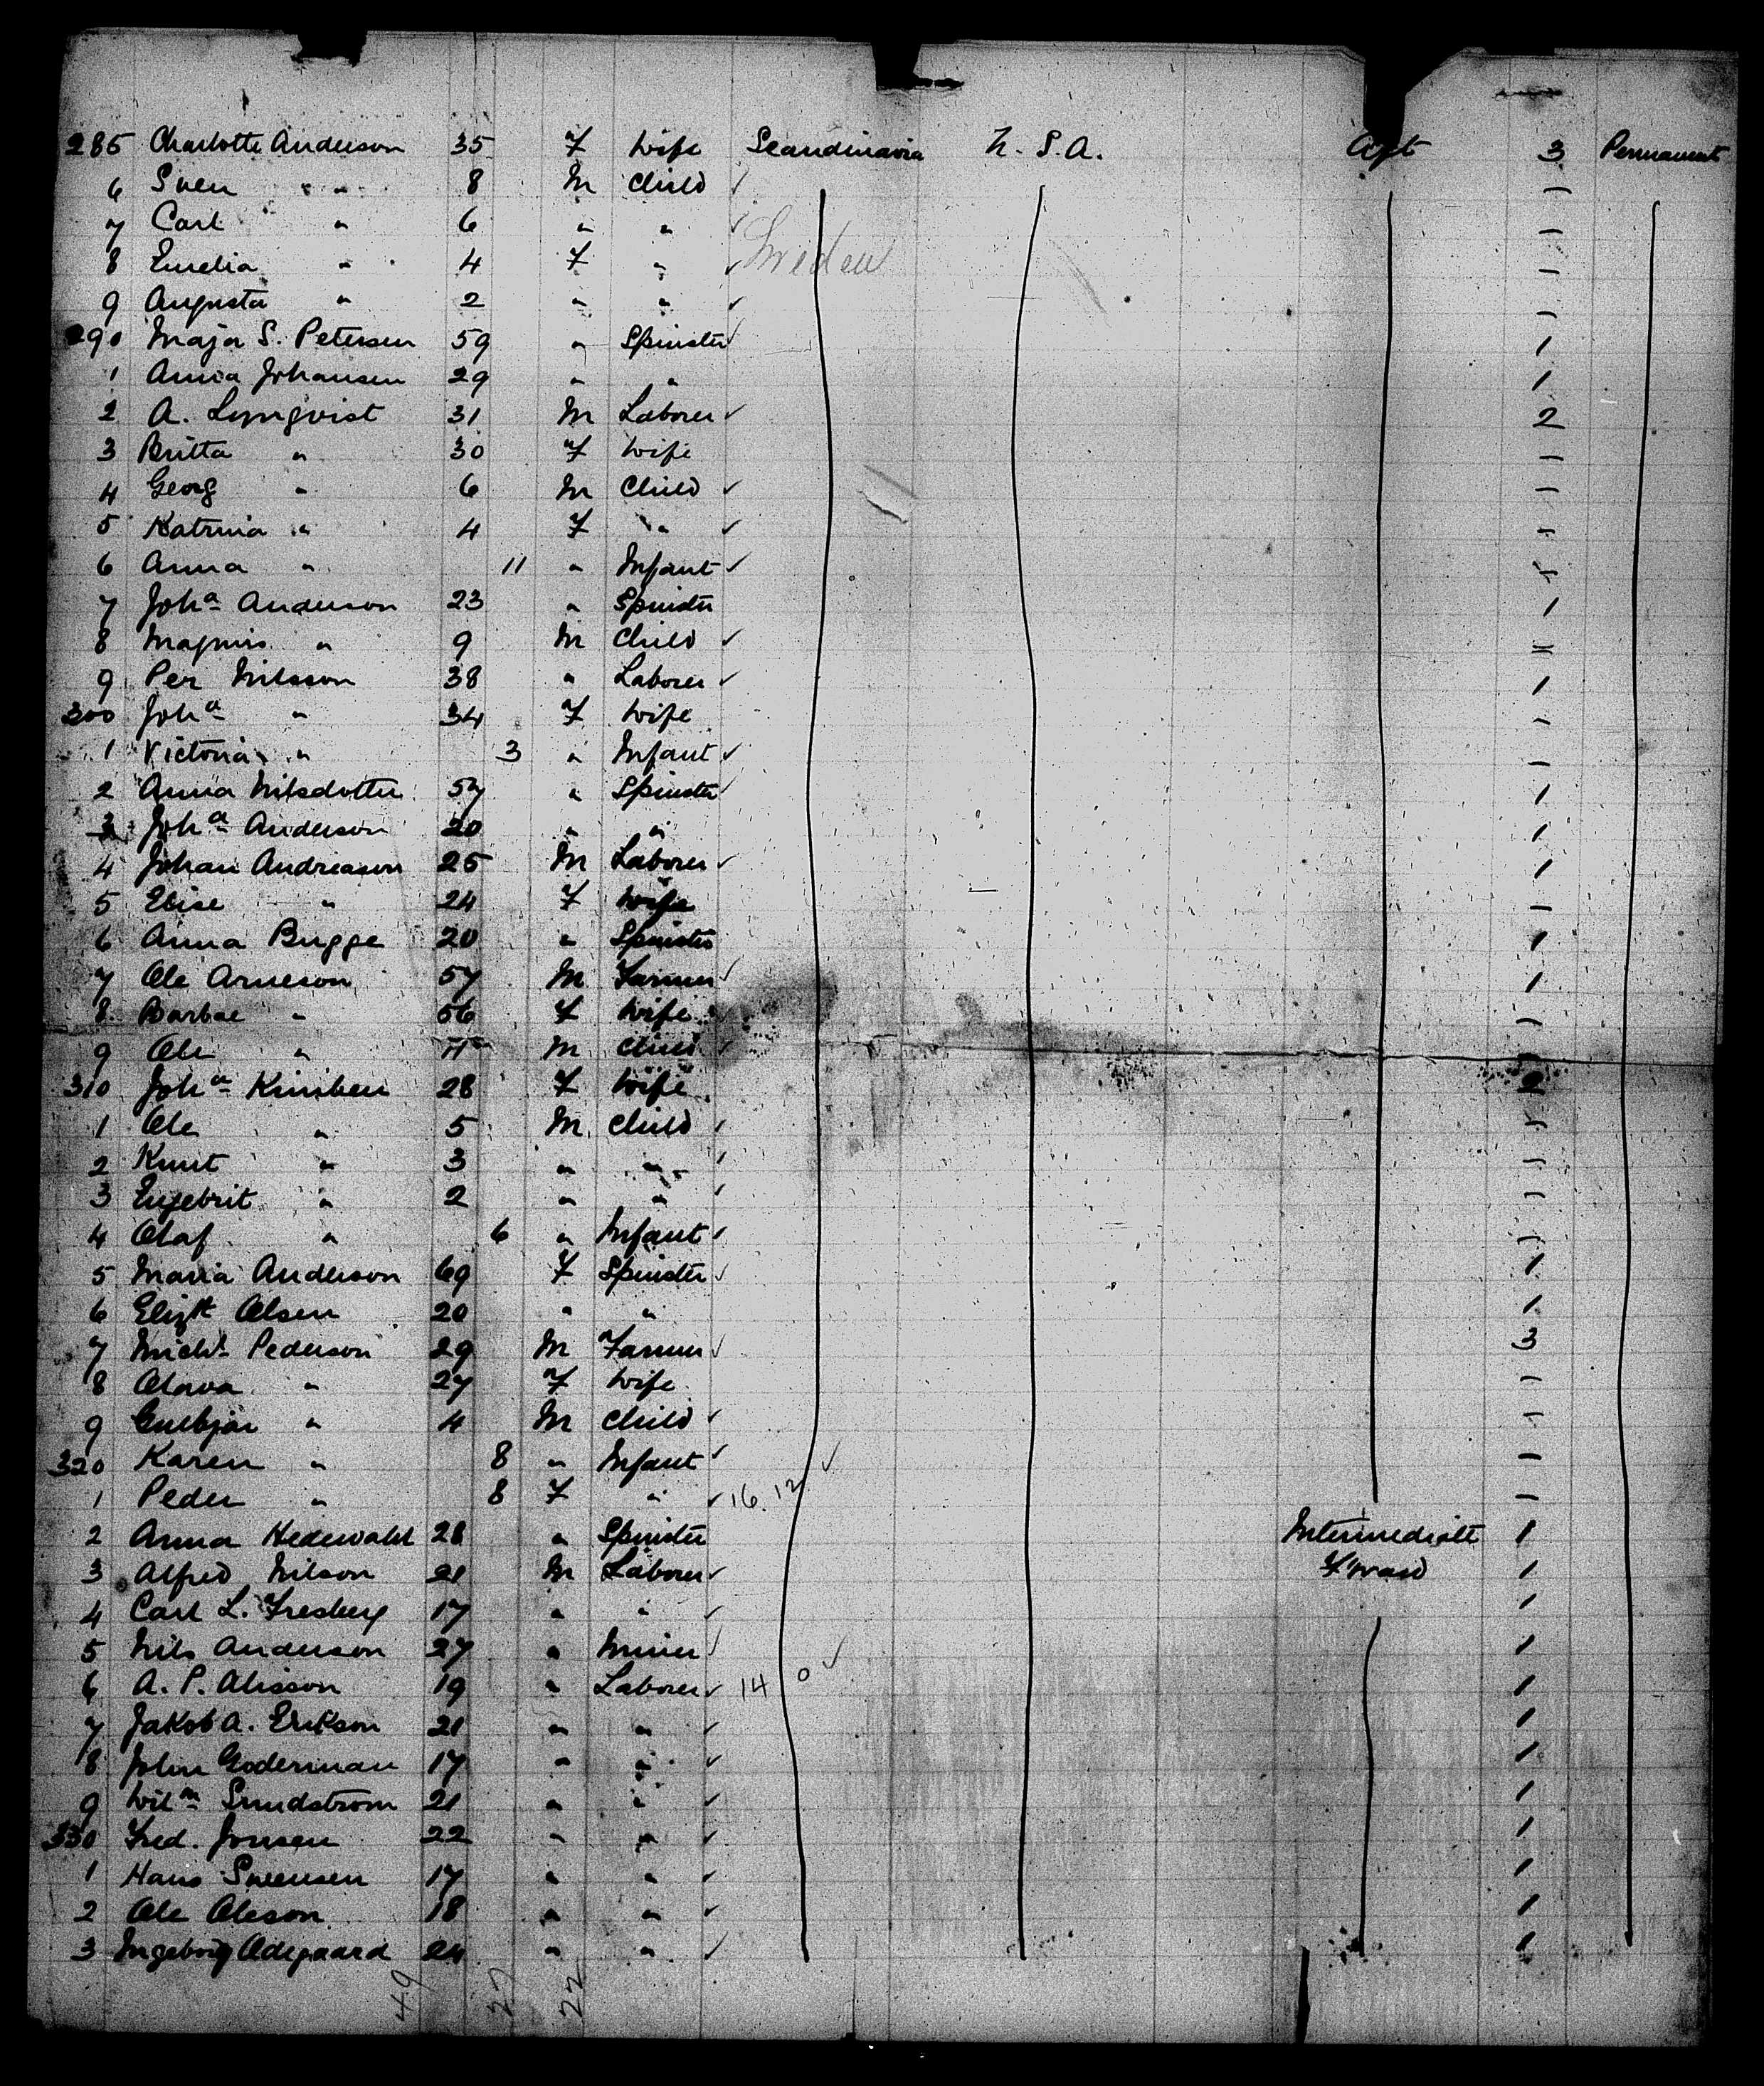 285 Charlotte Anderson 35 F Wife Scandinavia U.S.A. Aft 3 Permanent
6 Sven " 8 M Child ✓ –
7 Carl " 6 " " ✓ –
8 Emelia " 4 F " ✓ Sweden –
9 Augusta " 2 " " ✓ –
290 Maja S. Petersen 59 " Spinster ✓ 1
1 Anna Johansen 29 " " 1
2 A. Lynqvist 31 M Laborer ✓ 2
3 Britta " 30 F Wife –
4 Georg " 6 M Child ✓ –
5 Katrina " 4 F " ✓ –
6 Anna " 11 " Infant ✓ –
7 Joha Anderson 23 " Spinster 1
8 Magnus " 9 M Child ✓ –
9 Per Nilsson 38 " Laborer ✓ 1
300 Joha " 34 F Wife –
1 Victoria " 3 " Infant ✓ –
2 Anna Nilsdotter 57 " Spinster ✓ 1
3 Joha Anderson 20 " " 1
4 Johan Andreason 25 M Laborer ✓ 1
5 Elise " 24 F Wife –
6 Anna Brigge 20 " Spinster 1
7 Ole Arneson 57 M Farmer ✓ 1
8 Barbae " 56 F Wife –
9 Ole " 11 M Child ✓ –
310 Joha Kiniben 28 F Wife 2
1 Ole " 5 M Child ✓ –
2 Knut " 3 " " ✓ –
3 Engebrit " 2 " " ✓ –
4 Olaf " 6 " Infant ✓ –
5 Maria Anderson 69 F Spinster ✓ 1
6 Elizth Olsen 20 " " 1
7 Michl Pederson 29 M Farmer ✓ 3
8 Olava " 27 F Wife –
9 Gulbjar " 4 M Child ✓ –
320 Karen " 8 " Infant ✓ ✓ –
1 Peder " 8 F " ✓ 16.12 –
2 Anna Hedewahl 28 " Spinster Intermediate 1
3 Alfred Nilson 21 M Laborer ✓ F'ward 1
4 Carl L. Fresberg 17 " " ✓ 1
5 Nils Anderson 27 " Miner ✓ ✓ 1
6 A. P. Olisson 19 " Laborer ✓ 14 0 1
7 Jakob A. Erikson 21 " " ✓ 1
8 John Goderman 17 " " ✓ 1
9 Wilm Sundstrom 21 " " ✓ 1
330 Fred. Jonsen 22 " " ✓ 1
1 Hans Svensen 17 " " ✓ 1
2 Ole Oleson 18 " " ✓ 1
3 Ingeborg Odegaard 24 " " ✓ 1
49 27 22